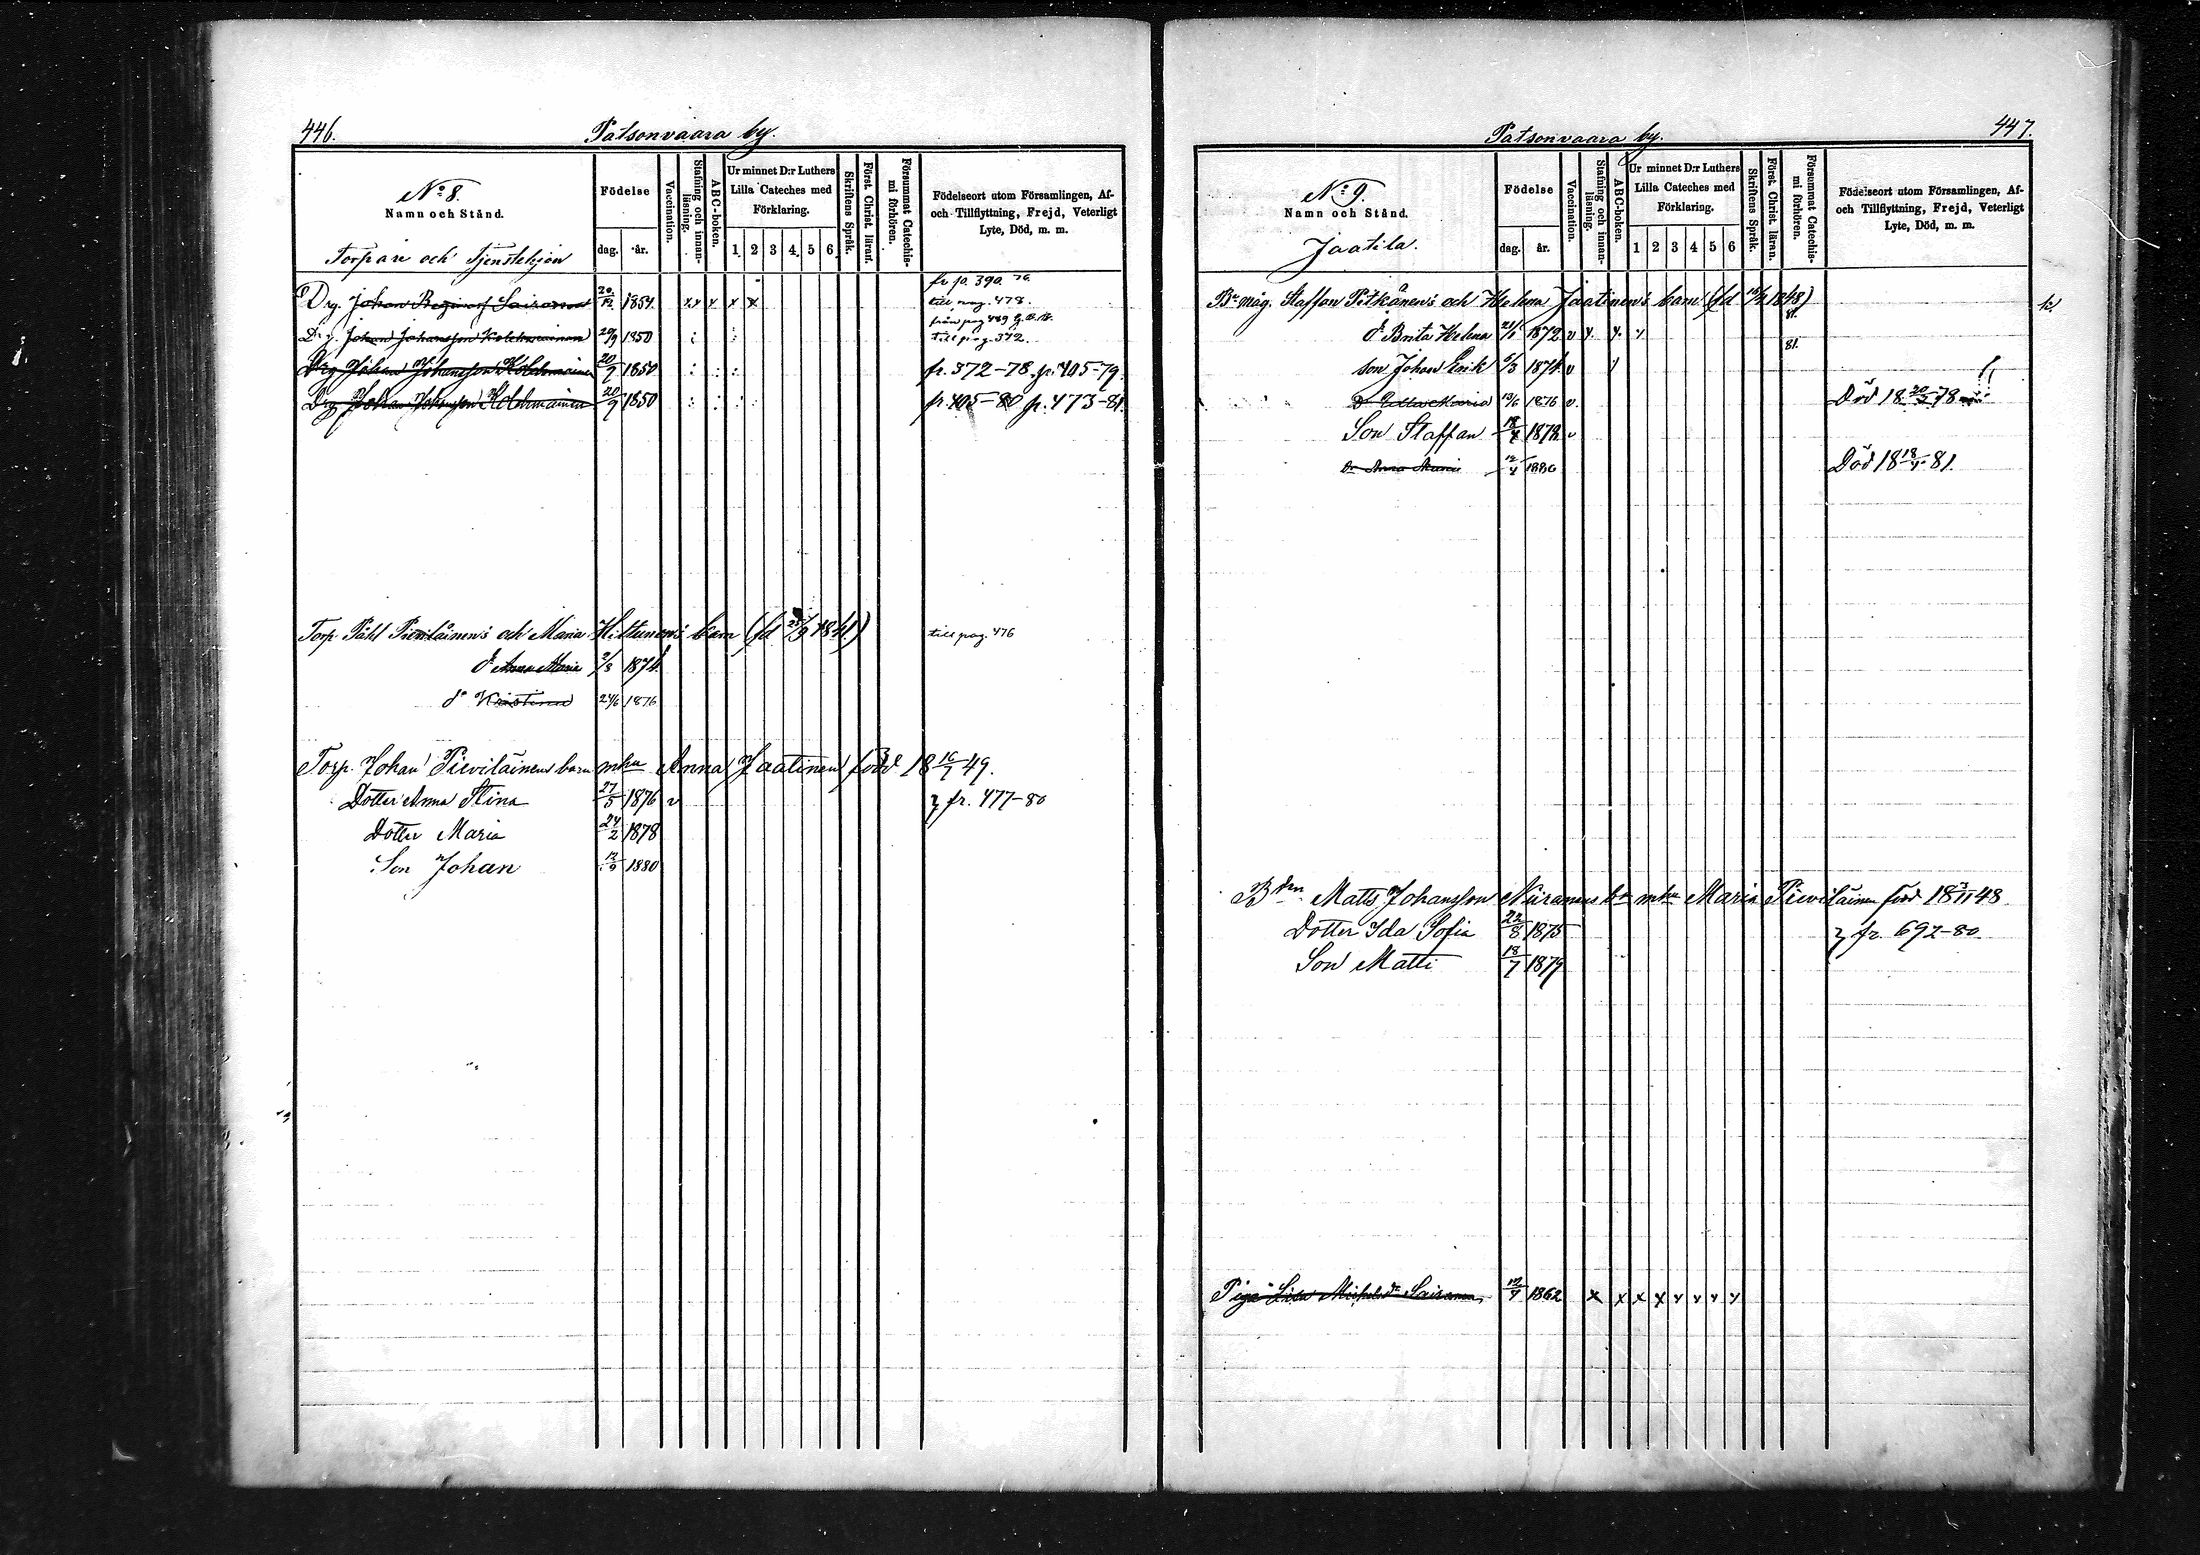 446.
Patsonvaara by.
No 8.
Namn och Stånd.
Torpare och Tjenstehjon
Födelse
dag. år.
Vaccination.
Stafning och innanläsning.
ABC-boken.
Ur minnet D:r Luthers Lilla Cateches med Förklaring.
1 2 3 4 5 6
Skriftens Språk.
Först. Christ. läran.
Försummat Catechismi förhören.
Födelseort utom Församlingen, Af- och Tillflyttning, Frejd, Veterligt Lyte, Död, m. m.
fr p. 390. 76
Drg. Johan Sairanen 20/12 1854. x x x x x till pag. 478.
från pag 489
Drg. Johan Johansson Kolehmainen 20/9 1850 till pag. 372.
Drg Johan Johansson Kolehmainen 20/9 1850 fr. 372-78. p. 405-79.
Drg Johan Johansson Kolehmainen 20/9 1850 fr. 405-80 p. 473-81.
Torp. Påhl Pieviläinen's och Maria Hiltunen's barn (fd 23/9 1841) till pag. 476
dr Anna Maria 2/3 1874.
dr Kristina 24/6 1876
Torp. Johan Pieviläinens barn mhu Anna Jaatinen född 18 16/7 49.
Dotter Anna Stina 27/5 1876 v fr. 477-80
Dotter Maria 24/2 1878
Son Johan 12/9 1880
447.
Patsonvaara by.
No 9.
Namn och Stånd.
Jaatila.
Födelse
dag. år.
Vaccination.
Stafning och innanläsning.
ABC-boken.
Ur minnet D:r Luthers Lilla Cateches med Förklaring.
1 2 3 4 5 6
Skriftens Språk.
Först. Christ. läran.
Försummat Catechismi förhören.
Födelseort utom Församlingen, Af- och Tillflyttning, Frejd, Veterligt Lyte, Död, m. m.
Br måg. Staffan Pitkänen's och Helena Jaatinen's barn (fd 1848)
81.
dr Brita Helena 1872 v
81.
son Johan Erik 6/3 1874 v
Dr Ulla Maria 1876 v. Död 18 20/3 78
Son Staffan 18/4 1878 v
Dr Anna Maria 12/4 1880 Död 18 18/4 81.
Bdn. Matts Johansson Niiranens bn mhu Maria Pieviläinen född 18 11 48.
Dotter Ida Sofia 22/8 1875 fr. 692-80.
Son Matti 18/7 1879
Piga Lisa Michelsdr Sairanen 1862 x x x x x x x x